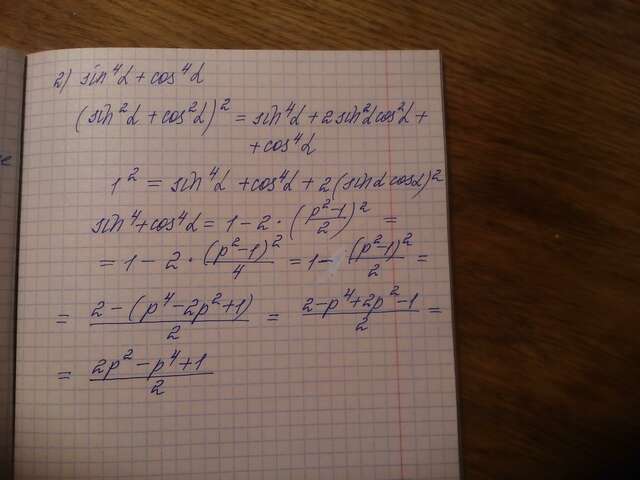 2) sin⁴α + cos⁴α
(sin²α + cos²α)² = sin⁴α + 2sin²αcos²α +
+ cos⁴α
1² = sin⁴α + cos⁴α + 2(sinα cosα)²
sin⁴ + cos⁴α = 1 - 2 · ((p²-1)/2)² =
= 1 - 2 · (p²-1)²/4 = 1 - (p²-1)²/2 =
= (2 - (p⁴ - 2p² + 1))/2 = (2 - p⁴ + 2p² - 1)/2 =
= (2p² - p⁴ + 1)/2